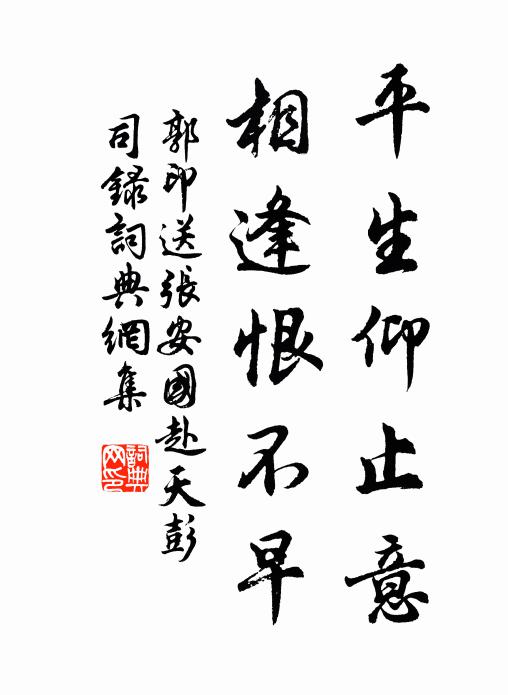 平生仰止意
相逢恨不早
郭印送張安國赴天彭
司錄詞典網集
詞典網印